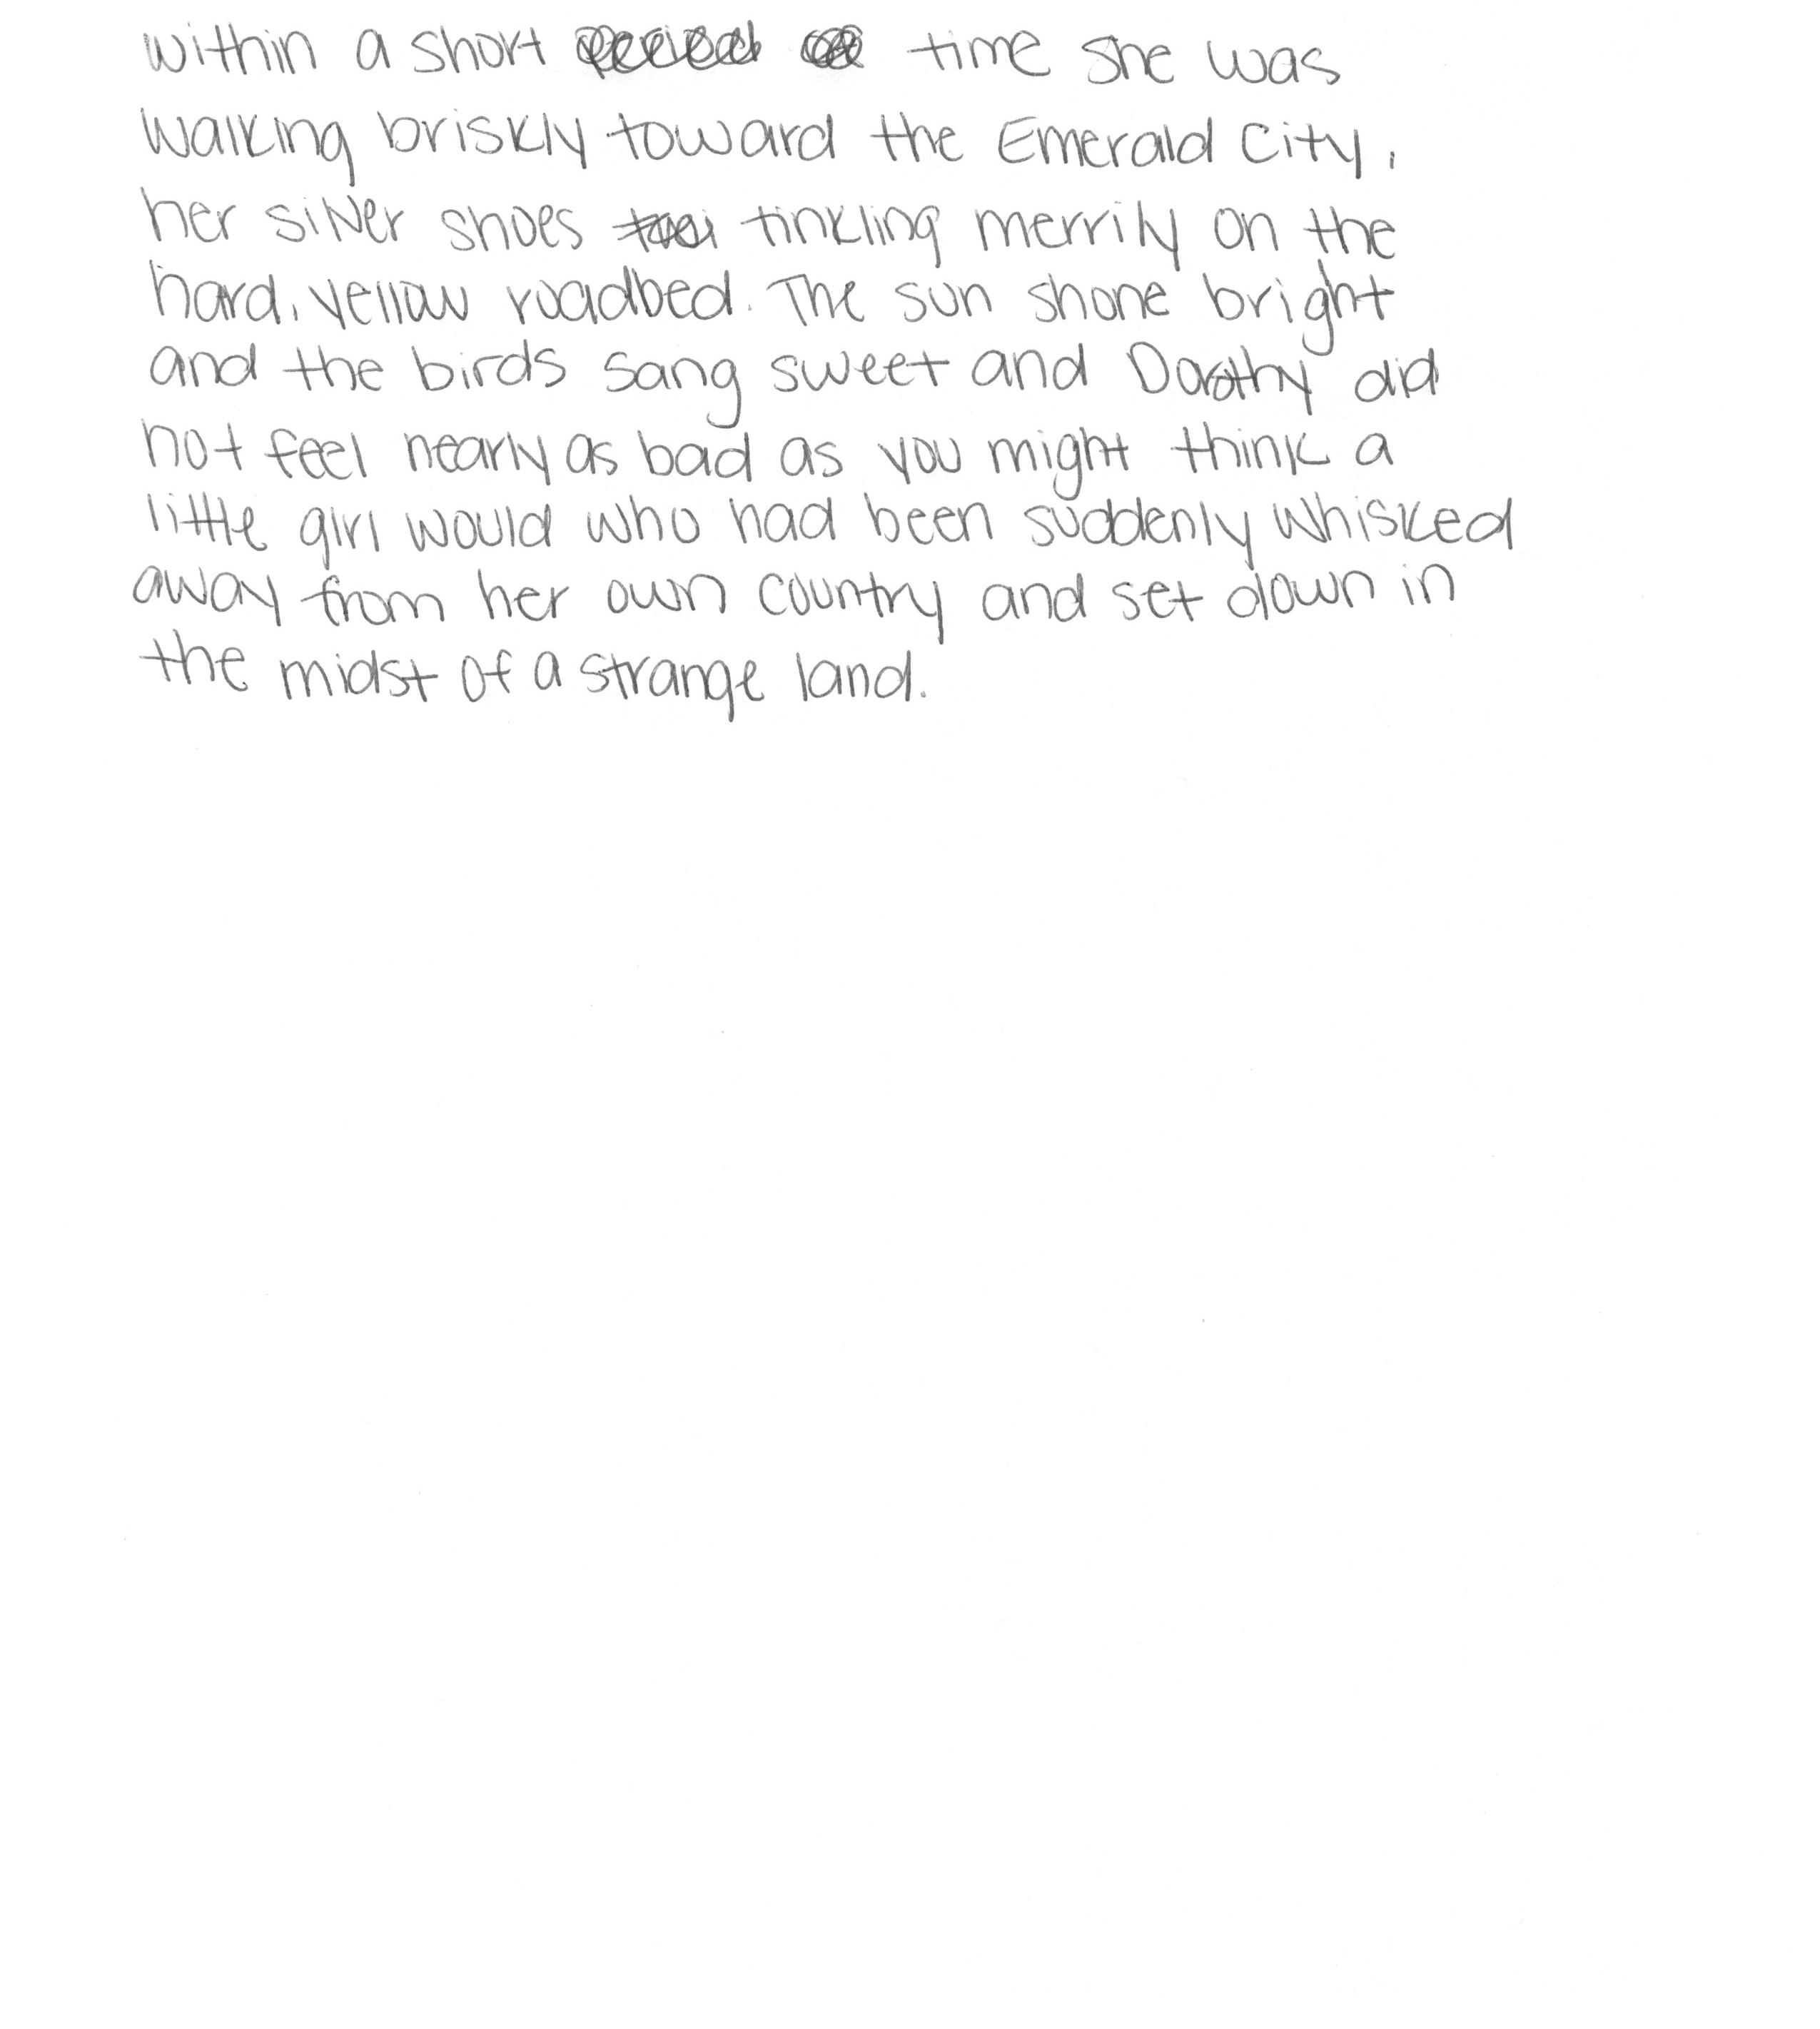 within a short time she was
walking briskly toward the Emerald City,
her silver shoes tinkling merrily on the
hard, yellow roadbed. The sun shone bright
and the birds sang sweet and Dorothy did
not feel nearly as bad as you might think a
little girl would who had been suddenly whisked
away from her own country and set down in
the midst of a strange land.